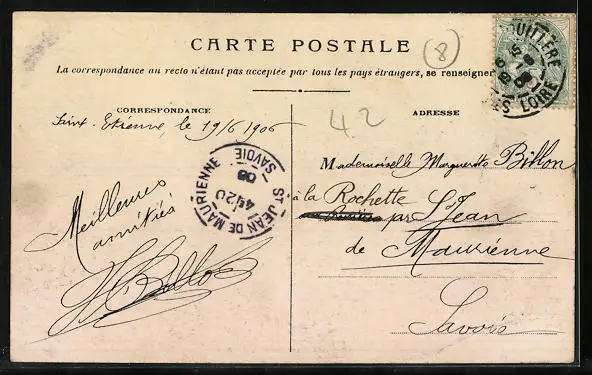 CARTE POSTALE
(8)
La correspondance au recto n'étant pas acceptée par tous les pays étrangers, se renseigner
CORRESPONDANCE
ADRESSE
42
Saint-Etienne, le 19/6 1906
ST JEAN DE MAURIENNE
SAVOIE
4E/20
06
LOIRE
Mademoiselle Marguerite Billon
à la Rochette
par St Jean
de Maurienne
Savoie
Meilleures
amitiés
Billon